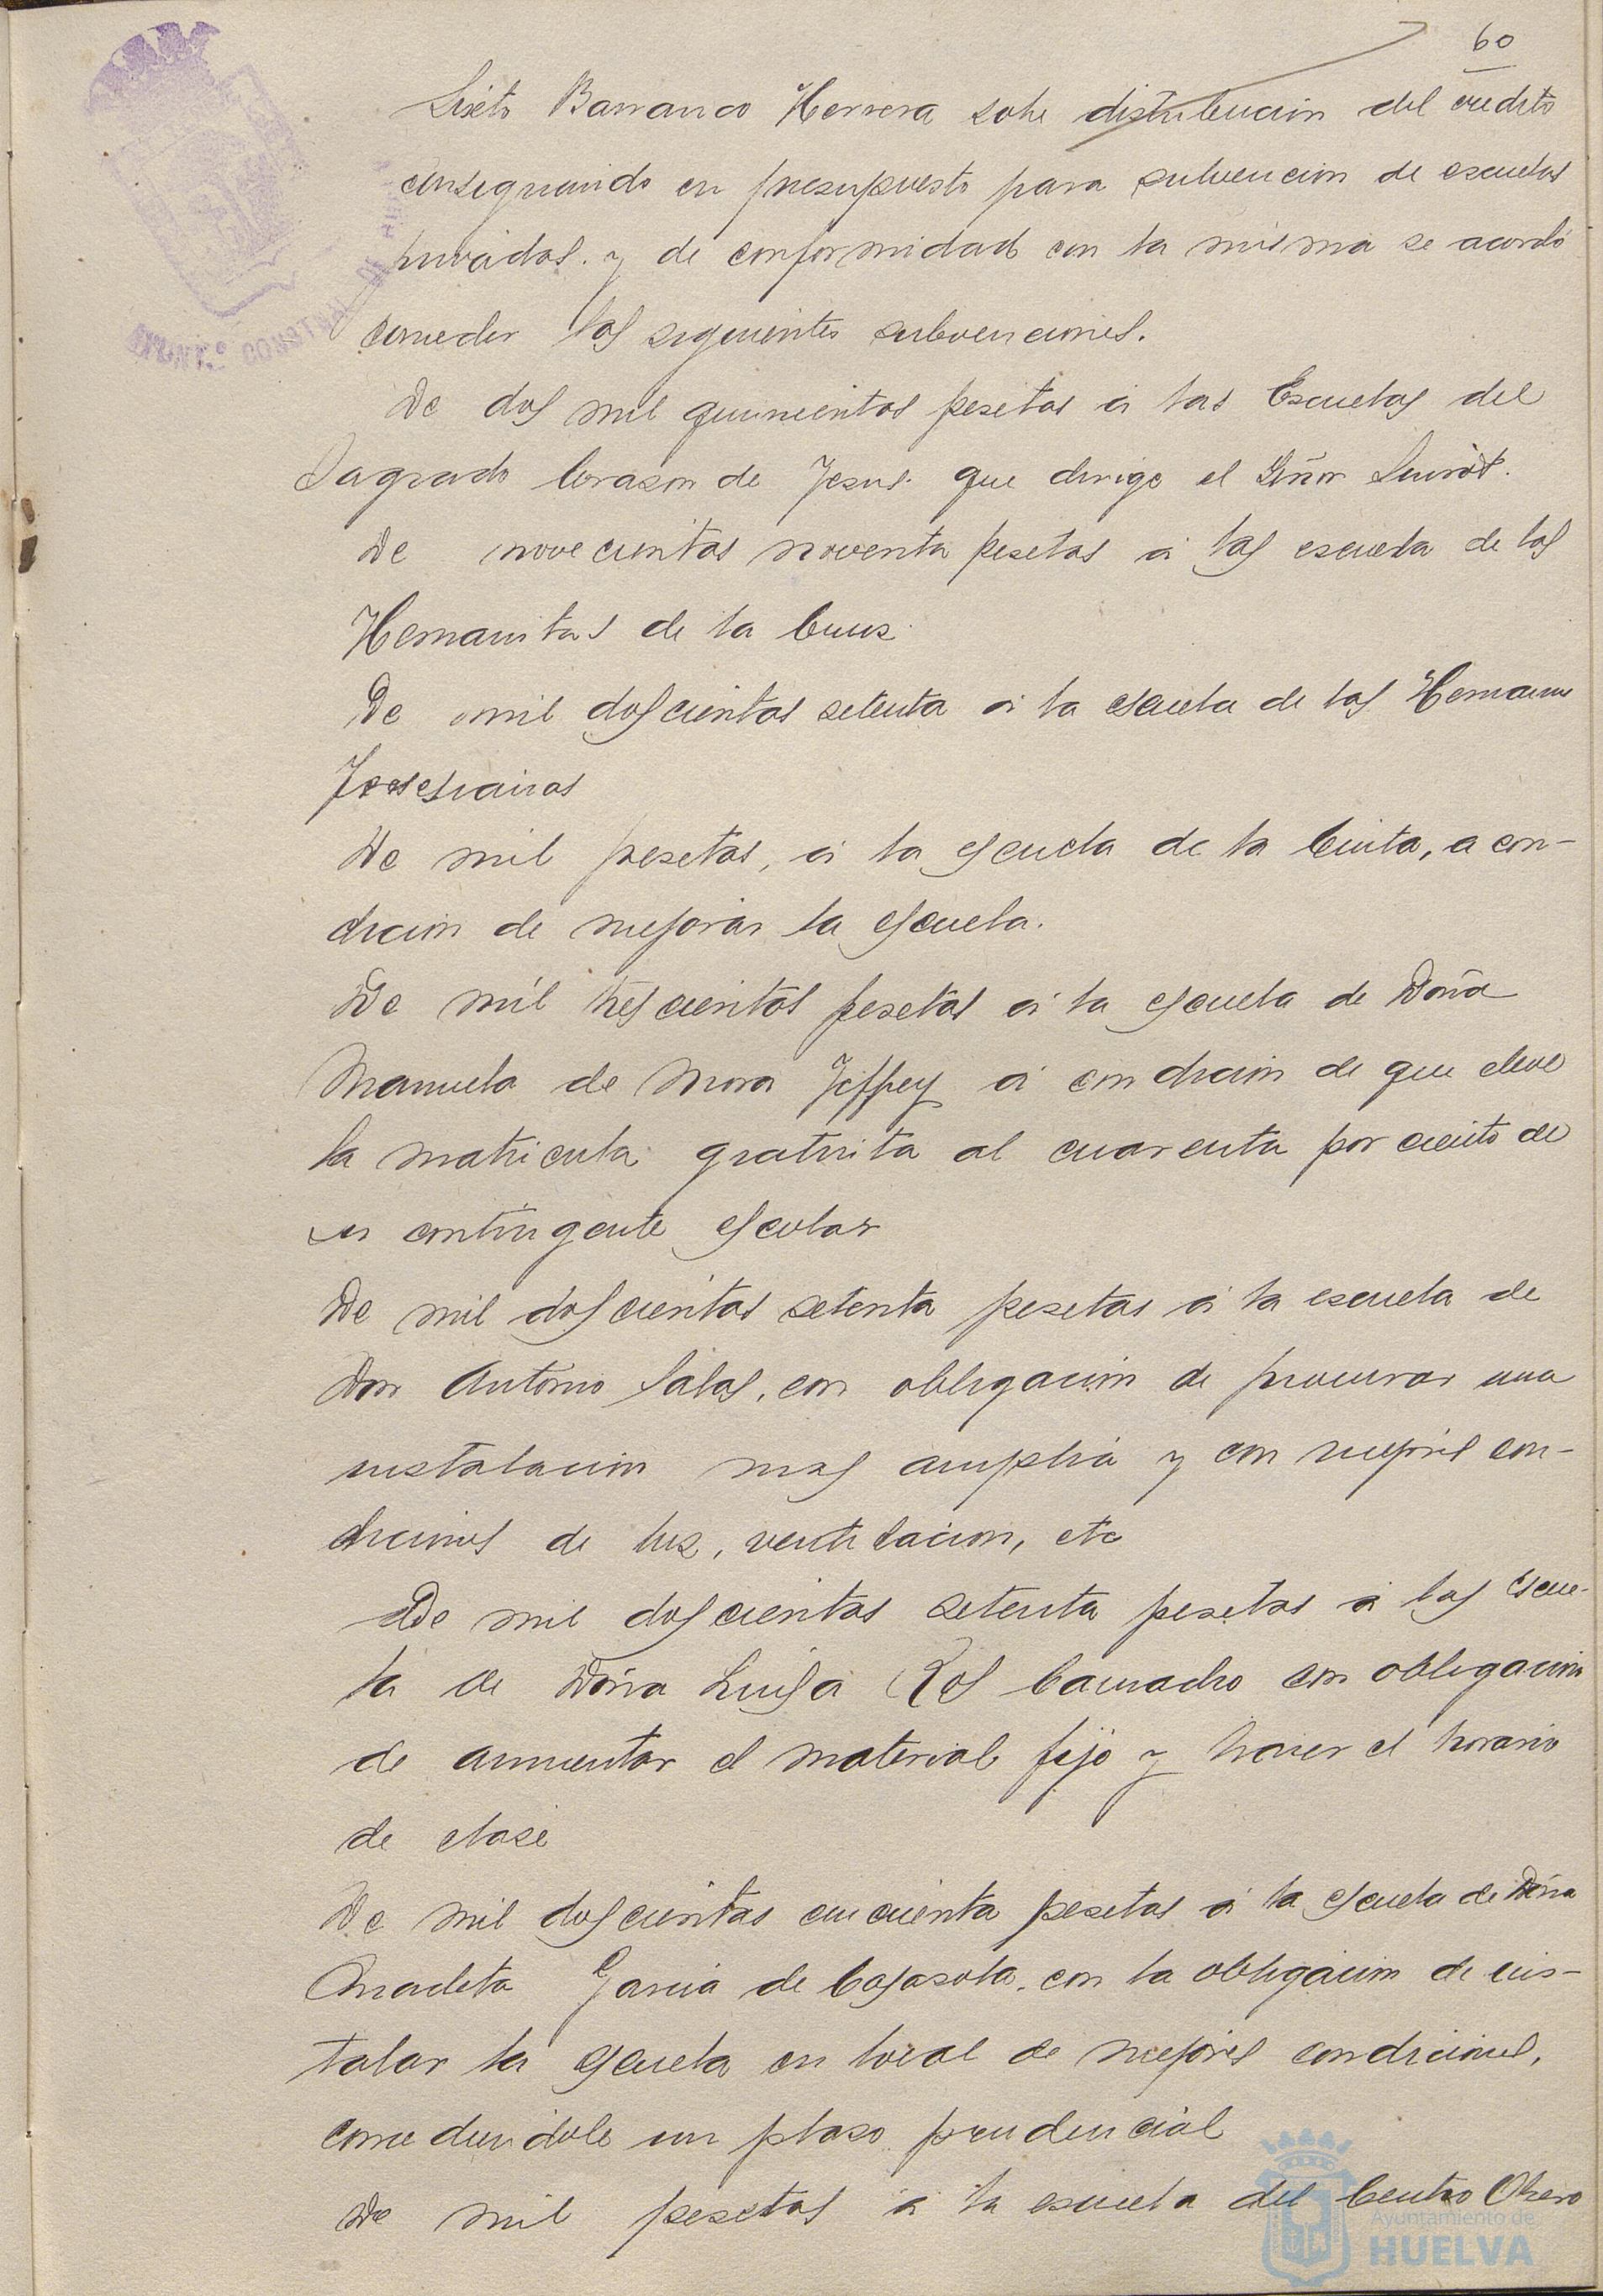 60
Sixto Barranco Herrera sobre distribucion del credito
consignando en presupuesto para subvencion de escuelas
privadas. y de conformidad con la misma se acordó
conceder las siguientes subvenciones.
De dos mil quinientas pesetas á las Escuelas del
Sagrado Corazon de Jesus. que dirige el Señor Siurot.
De novecientas noventa pesetas á las escuela de las
Hermanitas de la Cruz.
De mil doscientas setenta á la escuela de las Hermanas
Teresianas
De mil pesetas, á la escuela de la Cinta, a con-
dicion de mejorar la escuela.
De mil trescientas pesetas á la escuela de Doña
Manuela de Mora Jeffrey á condicion de que eleve
la matricula gratuita al cuarenta por ciento de
su contingente escolar
De mil doscientas setenta pesetas á la escuela de
Don Antonio Salas, con obligacion de procurar una
instalacion mas amplia y con mejores con-
diciones de luz, ventilacion, etc
De mil doscientas setenta pesetas á las escue-
la de Doña Luisa Ros Camacho con obligacion
de aumentar el material fijo y hacer el horario
de clase
De mil doscientas cincuenta pesetas á la escuela de Doña
Anacleta Garcia de Casasola. con la obligacion de ins-
talar la escuela en local de mejores condiciones,
concediendole un plazo prudencial
De mil pesetas á la escuela del Centro Obrero
Ayuntamiento de
HUELVA